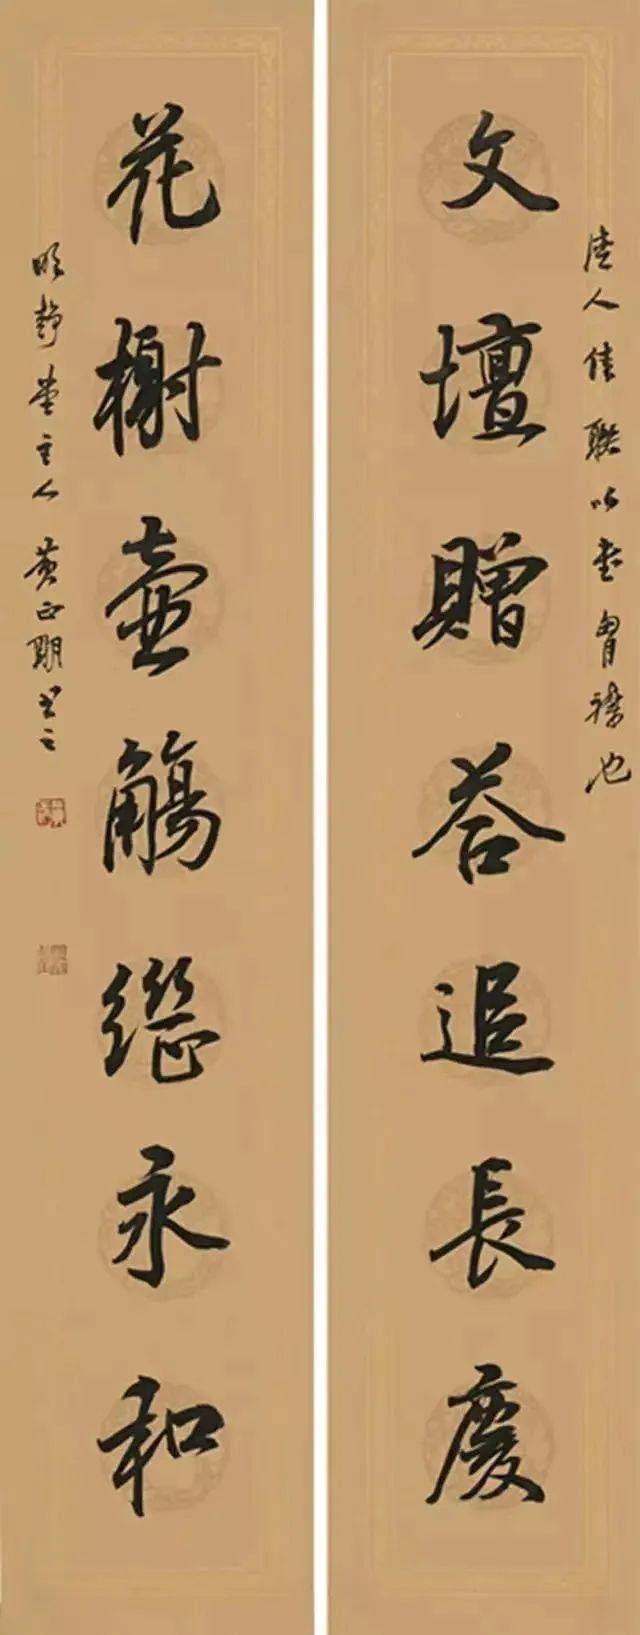 人佳聯以書胷襟也
文壇贈答追長慶
花榭壺觴繼永和
静堂主人黄正明書之